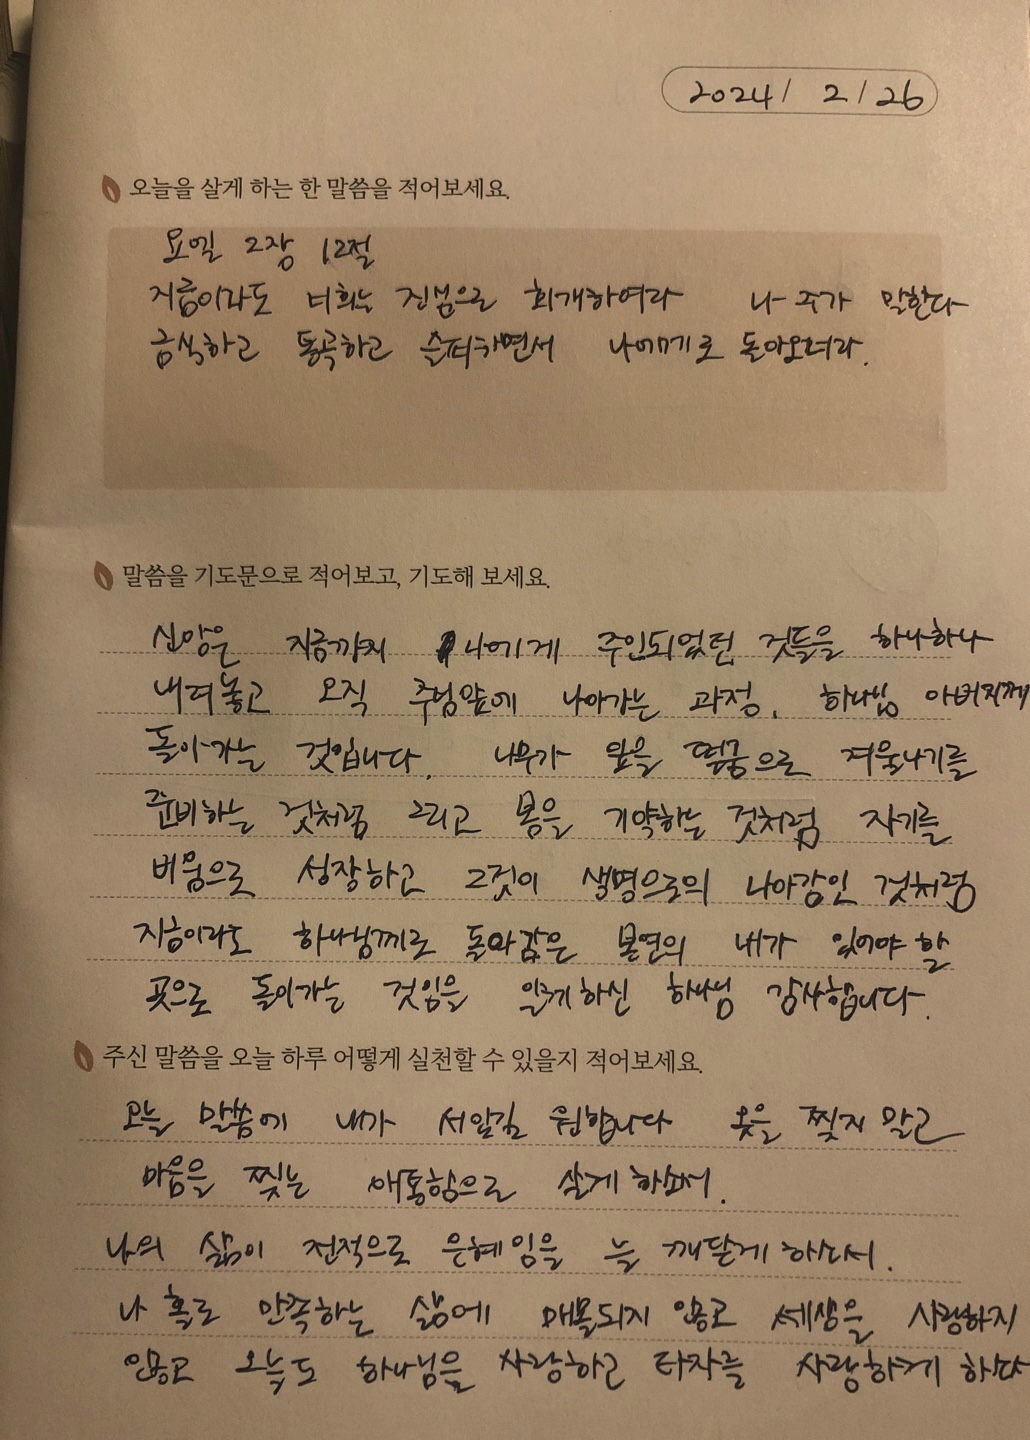 2024 / 2 / 26
오늘을 살게 하는 한 말씀을 적어보세요.
요엘 2장 12절
지금이라도 너희는 진심으로 회개하여라 나 주가 말한다
금식하고 통곡하고 슬퍼하면서 나에게로 돌아오너라.
말씀을 기도문으로 적어보고, 기도해 보세요.
신앙은 지금까지 나에게 주인되었던 것들을 하나하나
내려놓고 오직 주님앞에 나아가는 과정. 하나님 아버지께
돌아가는 것입니다. 나무가 잎을 떨굼으로 겨울나기를
준비하는 것처럼 그리고 봄을 기약하는 것처럼 자기를
비움으로 성장하고 그것이 생명으로의 나아감인 것처럼
지금이라도 하나님께로 돌아감은 본연의 내가 있어야 할
곳으로 돌아가는 것임을 일깨우신 하나님 감사합니다.
주신 말씀을 오늘 하루 어떻게 실천할 수 있을지 적어보세요.
오늘 말씀에 내가 서있길 원합니다 옷을 찢지 말고
마음을 찢는 애통함으로 살게 하소서.
나의 삶이 전적으로 은혜임을 늘 깨닫게 하소서.
나 홀로 만족하는 삶에 매몰되지 않고 세상을 사랑하지
않고 오늘도 하나님을 사랑하고 타자를 사랑하게 하소서